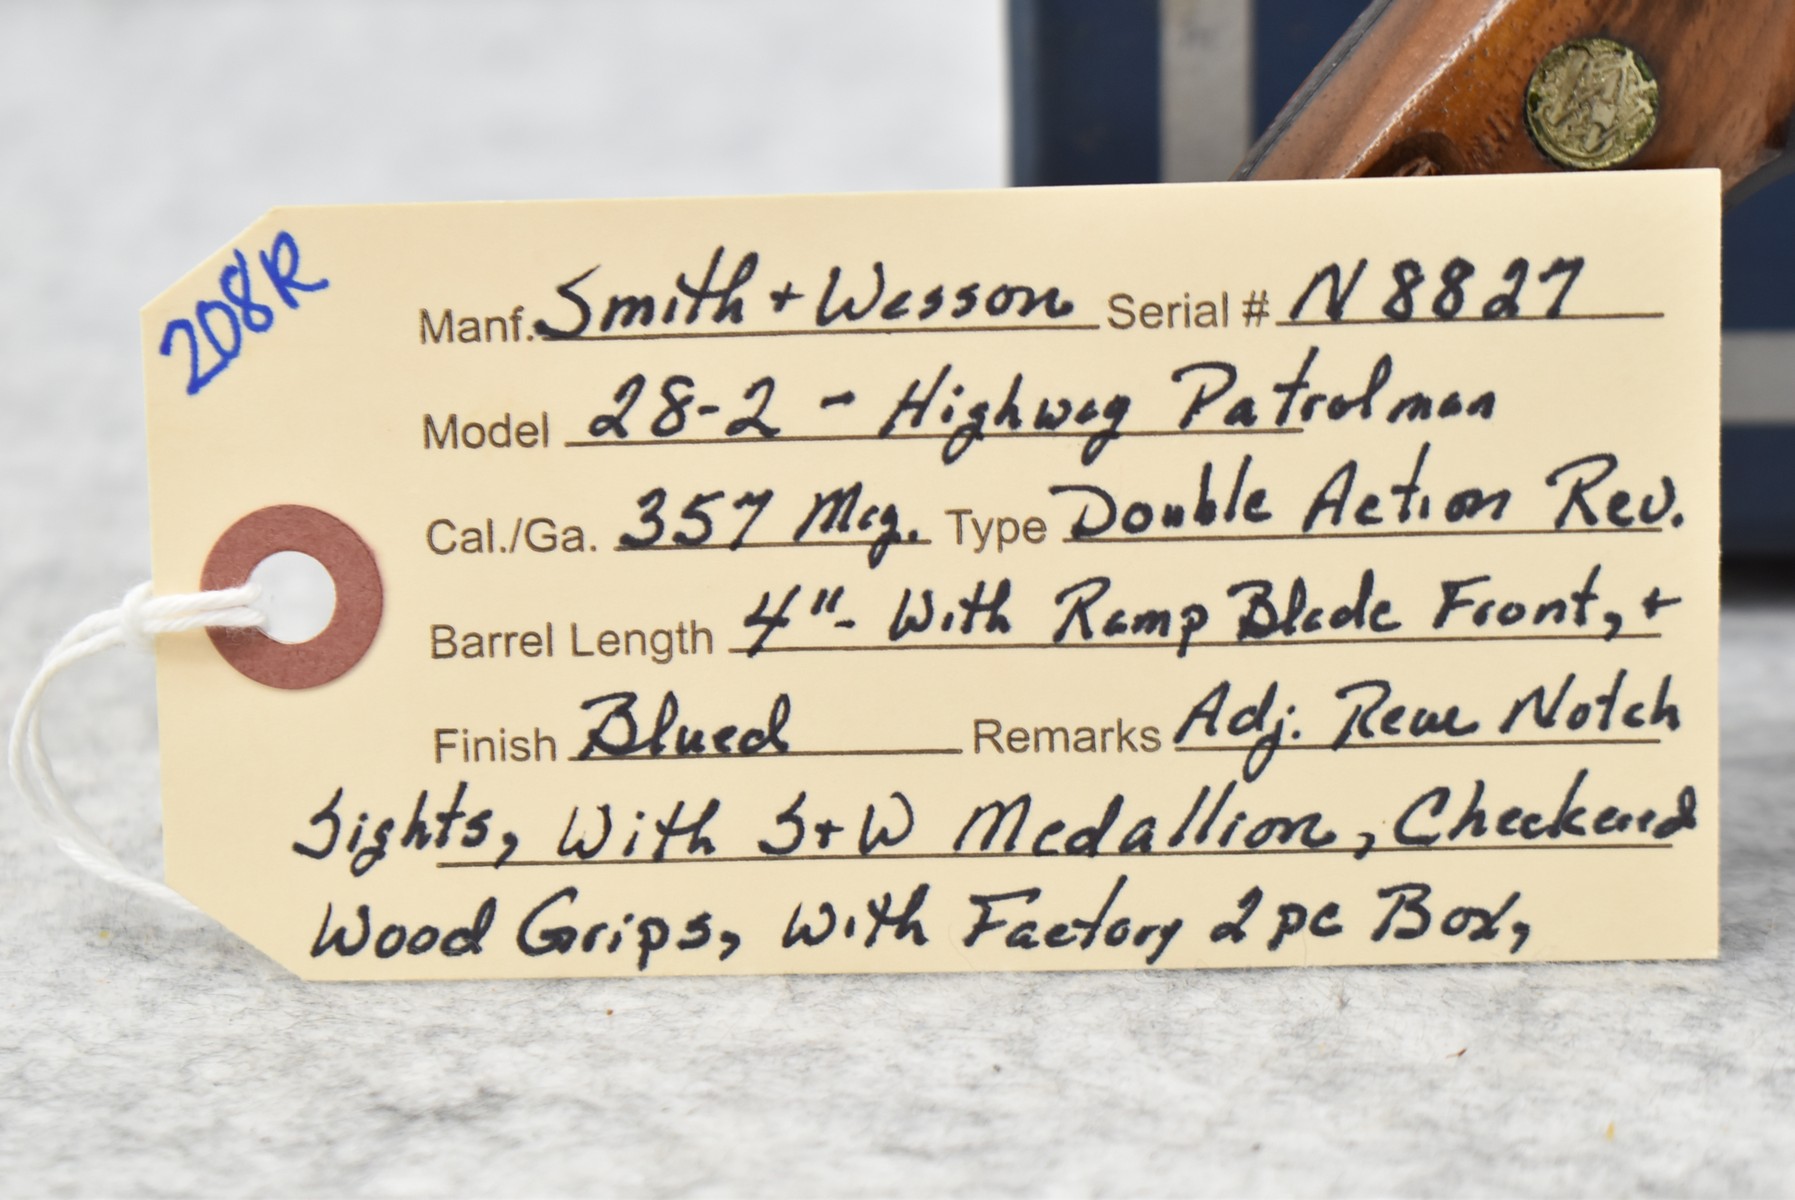 208R
Manf. Smith + Wesson Serial # N8827
Model 28-2 - Highway Patrolman
Cal./Ga. 357 Mag. Type Double Action Rev.
Barrel Length 4" - With Ramp Blade Front, +
Finish Blued Remarks Adj. Rear Notch
Sights, With S+W Medallion, Checkered
Wood Grips, With Factory 2 pc Box,